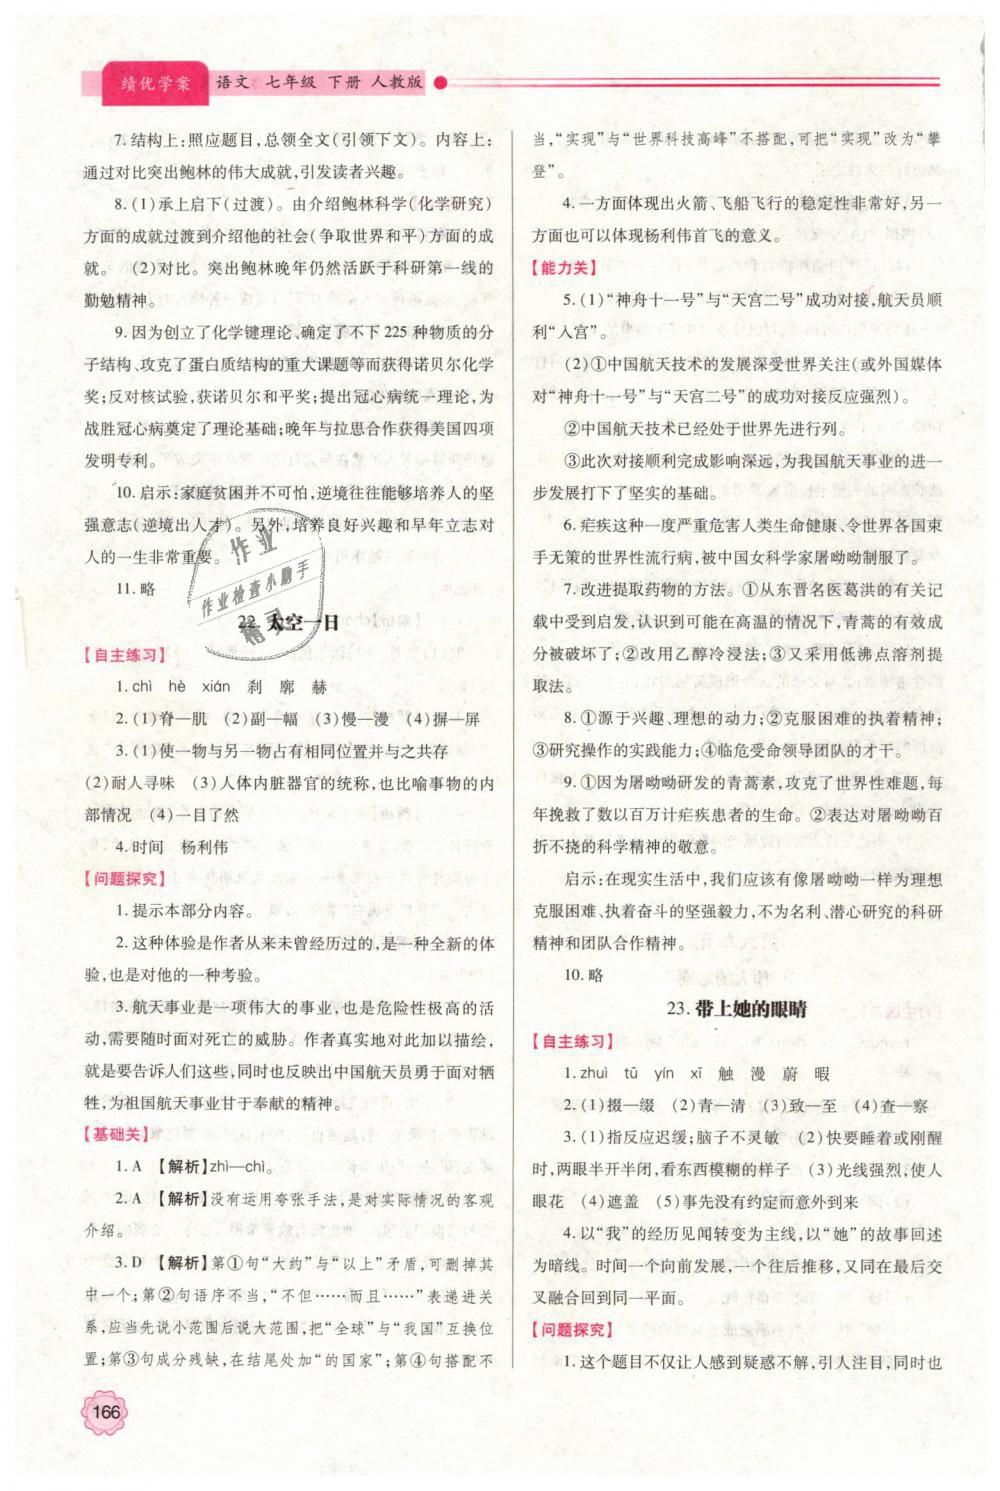 绩优学案 语文 七年级 下册 人教版
7. 结构上:照应题目,总领全文(引领下文)。内容上:
通过对比突出鲍林的伟大成就,引发读者兴趣。
8. (1)承上启下(过渡)。由介绍鲍林科学(化学研究)
方面的成就过渡到介绍他的社会(争取世界和平)方面的成
就。 (2)对比。突出鲍林晚年仍然活跃于科研第一线的
勤勉精神。
9. 因为创立了化学键理论、确定了不下 225 种物质的分
子结构、攻克了蛋白质结构的重大课题等而获得诺贝尔化学
奖;反对核试验,获诺贝尔和平奖;提出冠心病统一理论,为
战胜冠心病奠定了理论基础;晚年与拉思合作获得美国四项
发明专利。
10. 启示:家庭贫困并不可怕,逆境往往能够培养人的坚
强意志(逆境出人才)。另外,培养良好兴趣和早年立志对
人的一生非常重要。
11. 略
22. 太空一日
【自主练习】
1. chì hè xián 刹 廓 赫
2. (1)脊—肌 (2)副—幅 (3)慢—漫 (4)摒—屏
3. (1)使一物与另一物占有相同位置并与之共存
(2)耐人寻味 (3)人体内脏器官的统称,也比喻事物的内
部情况 (4)一目了然
4. 时间 杨利伟
【问题探究】
1. 提示本部分内容。
2. 这种体验是作者从来未曾经历过的,是一种全新的体
验,也是对他的一种考验。
3. 航天事业是一项伟大的事业,也是危险性极高的活
动,需要随时面对死亡的威胁。作者真实地对此加以描绘,
就是要告诉人们这些,同时也反映出中国航天员勇于面对牺
牲,为祖国航天事业甘于奉献的精神。
【基础关】
1. A 【解析】zhì—chì。
2. A 【解析】没有运用夸张手法,是对实际情况的客观
介绍。
3. D 【解析】第①句“大约”与“以上”矛盾,可删掉其
中一个;第②句语序不当,“不但……而且……”表递进关
系,应当先说小范围后说大范围,把“全球”与“我国”互换位
置;第③句成分残缺,在结尾处加“的国家”;第④句搭配不
当,“实现”与“世界科技高峰”不搭配,可把“实现”改为“攀
登”。
4. 一方面体现出火箭、飞船飞行的稳定性非常好,另一
方面也可以体现杨利伟首飞的意义。
【能力关】
5. (1)“神舟十一号”与“天宫二号”成功对接,航天员顺
利“入宫”。
(2)①中国航天技术的发展深受世界关注(或外国媒体
对“神舟十一号”与“天宫二号”的成功对接反应强烈)。
②中国航天技术已经处于世界先进行列。
③此次对接顺利完成影响深远,为我国航天事业的进一
步发展打下了坚实的基础。
6. 疟疾这种一度严重危害人类生命健康、令世界各国束
手无策的世界性流行病,被中国女科学家屠呦呦制服了。
7. 改进提取药物的方法。①从东晋名医葛洪的有关记
载中受到启发,认识到可能在高温的情况下,青蒿的有效成
分被破坏了;②改用乙醇冷浸法;③又采用低沸点溶剂提
取法。
8. ①源于兴趣、理想的动力;②克服困难的执着精神;
③研究操作的实践能力;④临危受命领导团队的才干。
9. ①因为屠呦呦研发的青蒿素,攻克了世界性难题,每
年挽救了数以百万计疟疾患者的生命。②表达对屠呦呦百
折不挠的科学精神的敬意。
启示:在现实生活中,我们应该有像屠呦呦一样为理想
克服困难、执着奋斗的坚强毅力,不为名利、潜心研究的科研
精神和团队合作精神。
10. 略
23. 带上她的眼睛
【自主练习】
1. zhuì tū yín xī 触 漫 蔚 暇
2. (1)掇—缀 (2)青—清 (3)致—至 (4)查—察
3. (1)指反应迟缓;脑子不灵敏 (2)快要睡着或刚醒
时,两眼半开半闭,看东西模糊的样子 (3)光线强烈,使人
眼花 (4)遮盖 (5)事先没有约定而意外到来
4. 以“我”的经历见闻转变为主线,以“她”的故事回述
为暗线。时间一个向前发展,一个往后推移,又同在最后交
叉融合回到同一平面。
【问题探究】
1. 这个题目不仅让人感到疑惑不解,引人注目,同时也
166
作业
作业检查小助手
精灵